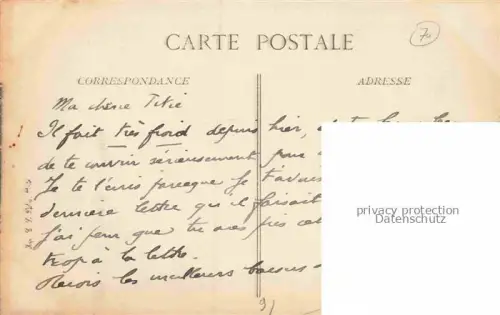 CARTE POSTALE
70
CORRESPONDANCE
ADRESSE
Ma chère Titie
Il fait très froid depuis hier,
de te couvrir sérieusement pour
Je te l'écris parceque je t'avais
dernière lettre qu'il faisait
j'ai peur que tu
trop à la lettre.
Reçois les meilleurs baisers
privacy protection
Datenschutz